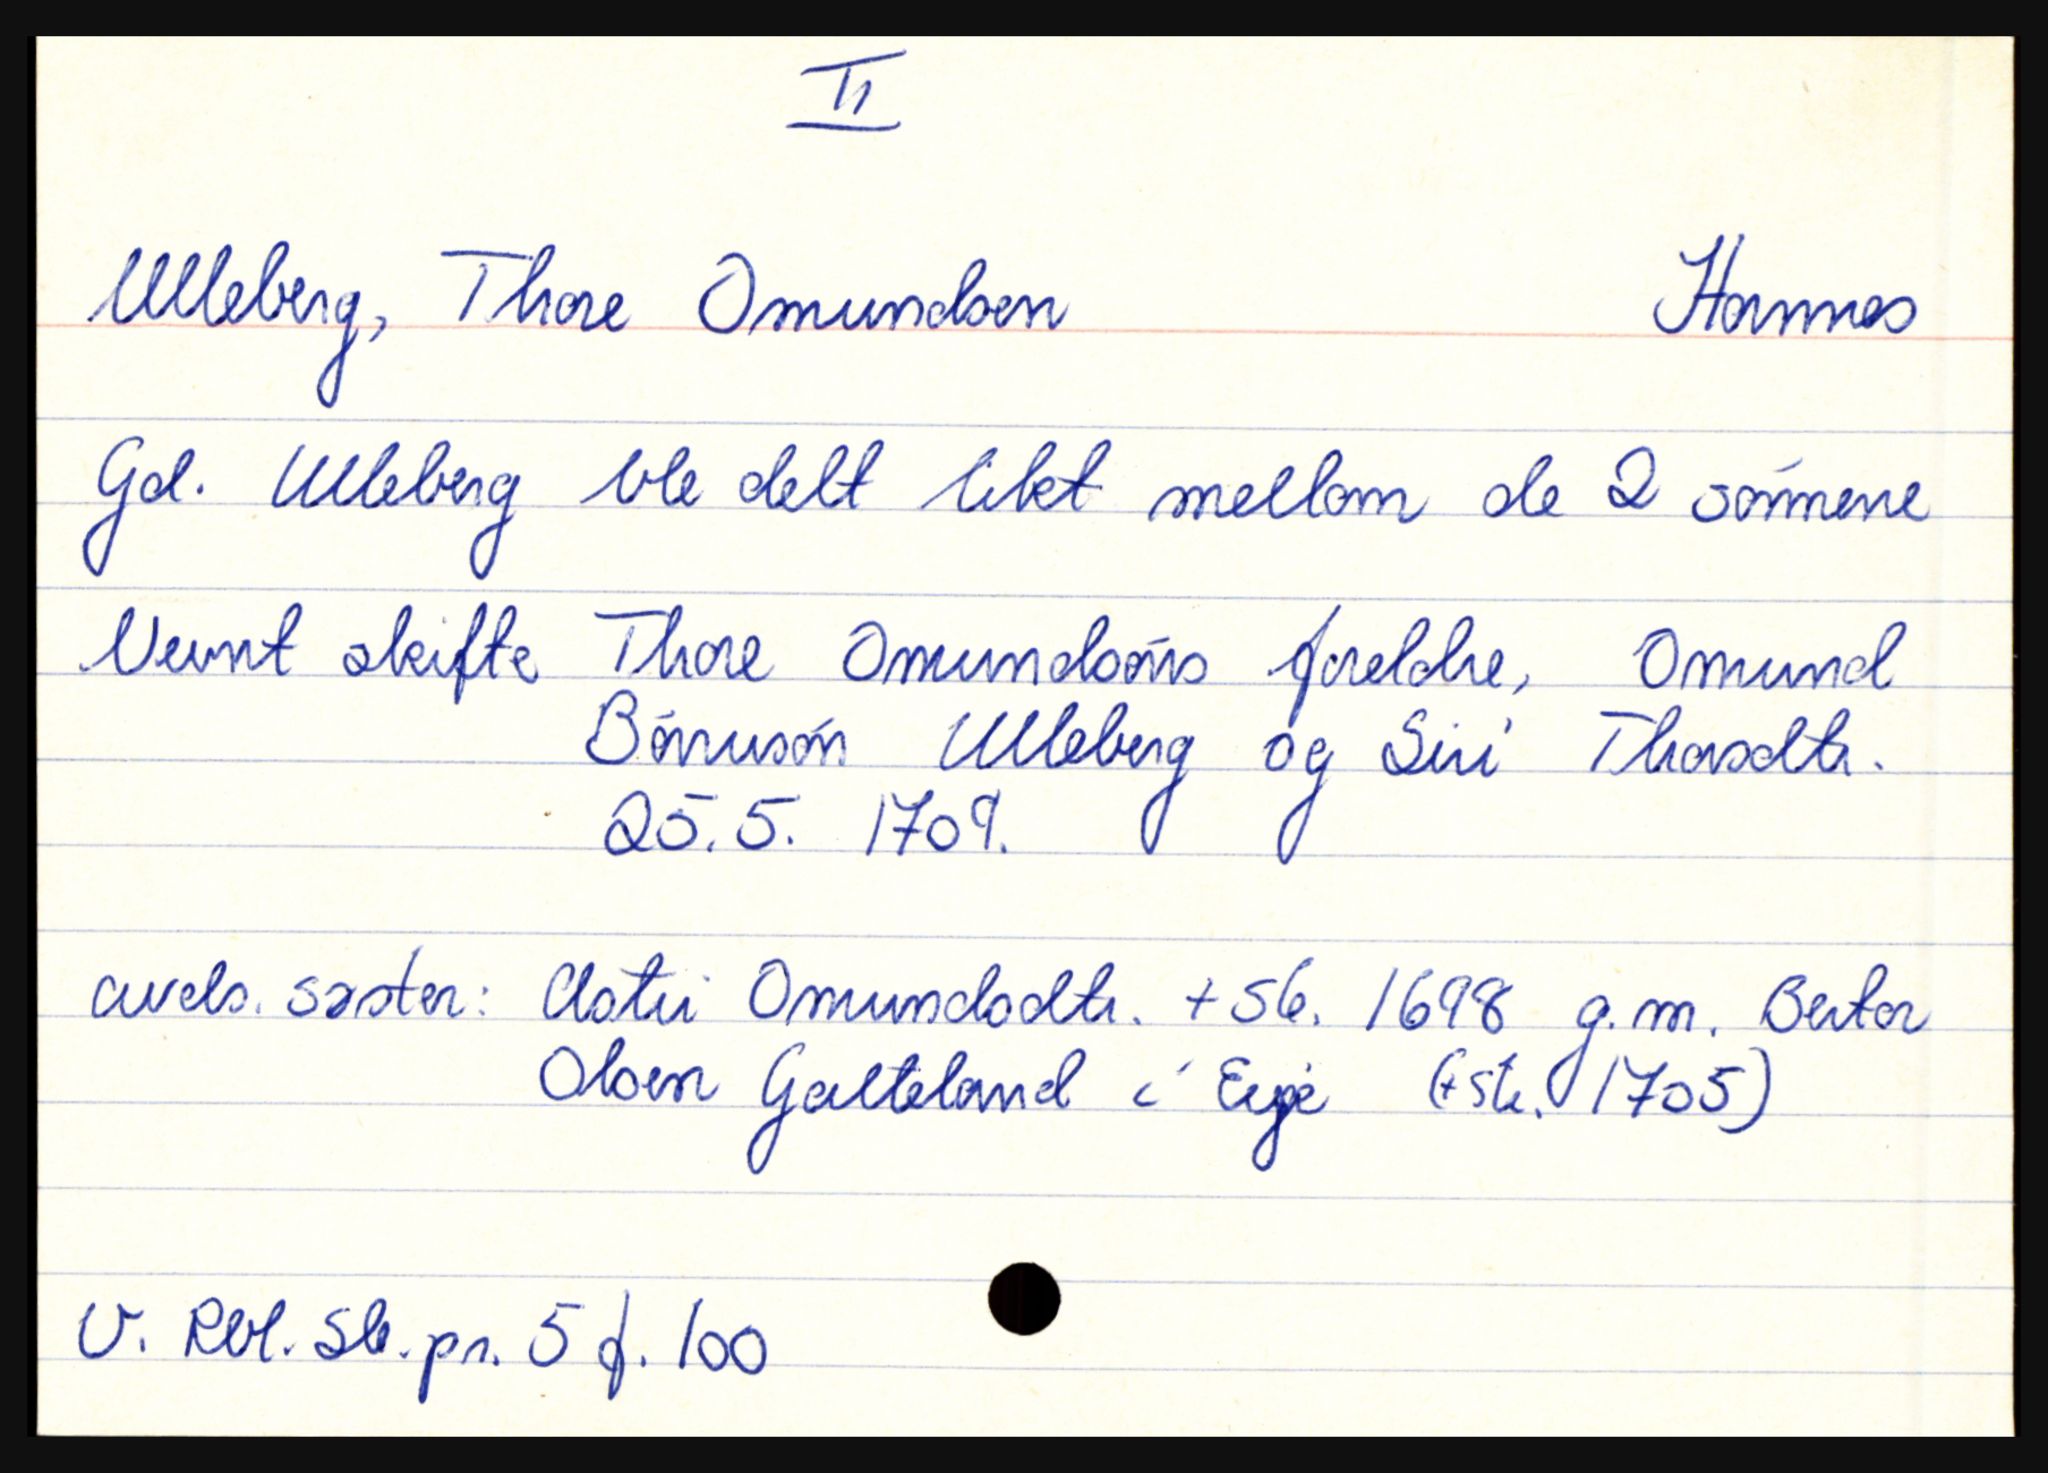 II
Ulleberg, Thore Omundsen Hornnes
Gd. Ulleberg ble delt likt mellom de 2 sønnene
Nevnt skifte Thore Omundsøns foreldre, Omund
Bårusøn Ulleberg og Siri Thorsdtr.
25.5. 1709.
avds. søster: Astri Omundsdtr. + sk. 1698 g.m. Bertor
Olsen Galteland i Evje (+ sk. 1705)
V. Rbl. Sk. pr. 5 f. 100